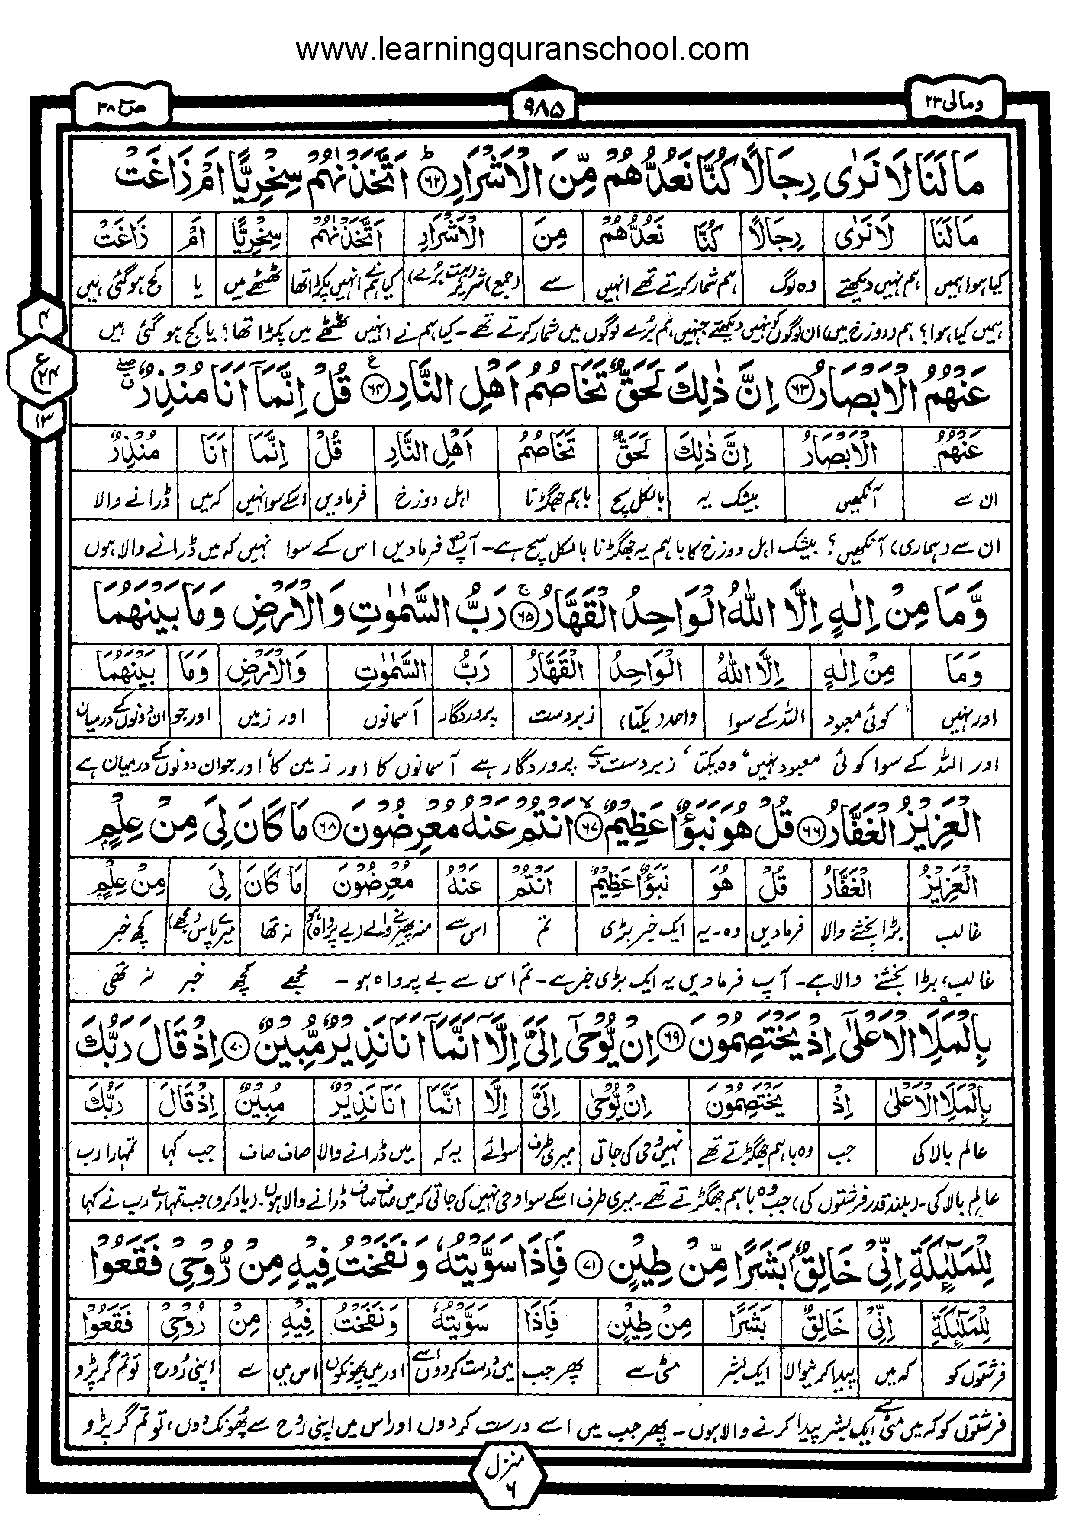 www.learningquranschool.com
ومالی ۲۳
۹۸۵
ص ۳۸
مَا لَنَا لَا نَرٰى رِجَالًا كُنَّا نَعُدُّهُمْ مِّنَ الْاَشْرَارِ ؕ۶۲ اَتَّخَذْنٰهُمْ سِخْرِيًّا اَمْ زَاغَتْ
مَا لَنَا لَا نَرٰى رِجَالًا كُنَّا نَعُدُّهُمْ مِنَ الْاَشْرَارِ اَتَّخَذْنٰهُمْ سِخْرِيًّا اَمْ زَاغَتْ
کیا ہوا ہمیں ہم نہیں دیکھتے وہ لوگ ہم شمار کرتے تھے انہیں سے (جمع) شریر (بہت بُرے) کیا ہم نے انہیں پکڑا تھا ٹھٹھے میں یا کج ہوگئی ہیں
ہمیں کیا ہوا؟ ہم (دوزخ میں) ان لوگوں کو نہیں دیکھتے جنہیں ہم بُرے لوگوں میں شمار کرتے تھے۔ کیا ہم نے انہیں ٹھٹھے میں پکڑا تھا؟ یا کج ہو گئی ہیں
۴
ع
۲۴
۱۳
عَنْهُمُ الْاَبْصَارُ ۶۳ اِنَّ ذٰلِكَ لَحَقٌّ تَخَاصُمُ اَهْلِ النَّارِ ۶۴ قُلْ اِنَّمَاۤ اَنَا مُنْذِرٌ
عَنْهُمُ الْاَبْصَارُ اِنَّ ذٰلِكَ لَحَقٌّ تَخَاصُمُ اَهْلِ النَّارِ قُلْ اِنَّمَا اَنَا مُنْذِرٌ
ان سے آنکھیں بیشک یہ بالکل سچ باہم جھگڑنا اہل دوزخ فرمادیں اسکے سوا نہیں کہ میں ڈرانے والا
ان سے (ہماری) آنکھیں؟ بیشک اہل دوزخ کا باہم یہ جھگڑنا بالکل سچ ہے۔ آپؐ فرمادیں اس کے سوا نہیں کہ میں ڈرانے والا ہوں
وَّمَا مِنْ اِلٰهٍ اِلَّا اللّٰهُ الْوَاحِدُ الْقَهَّارُ ۶۵ رَبُّ السَّمٰوٰتِ وَالْاَرْضِ وَمَا بَيْنَهُمَا
وَمَا مِنْ اِلٰهٍ اِلَّا اللّٰهُ الْوَاحِدُ الْقَهَّارُ رَبُّ السَّمٰوٰتِ وَالْاَرْضِ وَمَا بَيْنَهُمَا
اور نہیں کوئی معبود اللہ کے سوا واحد (یکتا) زبردست پروردگار آسمانوں اور زمین اور جو ان دونوں کے درمیان
اور اللہ کے سوا کوئی معبود نہیں، وہ یکتا، زبردست ہے پروردگار ہے آسمانوں کا اور زمین کا، اور جو ان دونوں کے درمیان ہے
الْعَزِيْزُ الْغَفَّارُ ۶۶ قُلْ هُوَ نَبَؤٌا عَظِيْمٌ ۶۷ اَنْتُمْ عَنْهُ مُعْرِضُوْنَ ۶۸ مَا كَانَ لِيَ مِنْ عِلْمٍ
الْعَزِيْزُ الْغَفَّارُ قُلْ هُوَ نَبَؤٌا عَظِيْمٌ اَنْتُمْ عَنْهُ مُعْرِضُوْنَ مَا كَانَ لِيَ مِنْ عِلْمٍ
غالب بڑا بخشنے والا فرمادیں وہ۔ یہ ایک خبر بڑی تم اس سے منہ پھیرنے والے (بے پرواہ) نہ تھا میرے پاس (مجھے) کچھ خبر
غالب، بڑا بخشنے والا ہے۔ آپ فرمادیں یہ ایک بڑی خبر ہے۔ تم اس سے بے پرواہ ہو۔ مجھے کچھ خبر نہ تھی
بِالْمَلَاِ الْاَعْلٰٓى اِذْ يَخْتَصِمُوْنَ ۶۹ اِنْ يُّوْحٰٓى اِلَيَّ اِلَّاۤ اَنَّمَاۤ اَنَا نَذِيْرٌ مُّبِيْنٌ ۷۰ اِذْ قَالَ رَبُّكَ
بِالْمَلَاِ الْاَعْلٰى اِذْ يَخْتَصِمُوْنَ اِنْ يُّوْحٰى اِلَيَّ اِلَّا اَنَّمَا اَنَا نَذِيْرٌ مُبِيْنٌ اِذْ قَالَ رَبُّكَ
عالم بالا کی جب وہ باہم جھگڑتے تھے نہیں وحی کی جاتی میری طرف سوائے یہ کہ میں ڈرانے والا صاف صاف جب کہا تمہارا رب
عالم بالا کی (بلند قدر فرشتوں کی) جب وہ باہم جھگڑتے تھے۔ میری طرف اسکے سوا وحی نہیں کی جاتی کہ میں صاف صاف ڈرانے والا ہوں۔ (یاد کرو) جب تمہارے رب نے کہا
لِلْمَلٰٓئِكَةِ اِنِّيْ خَالِقٌۢ بَشَرًا مِّنْ طِيْنٍ ۷۱ فَاِذَا سَوَّيْتُهٗ وَنَفَخْتُ فِيْهِ مِنْ رُّوْحِيْ فَقَعُوْا
لِلْمَلٰٓئِكَةِ اِنِّيْ خَالِقٌ بَشَرًا مِنْ طِيْنٍ فَاِذَا سَوَّيْتُهٗ وَنَفَخْتُ فِيْهِ مِنْ رُوْحِيْ فَقَعُوْا
فرشتوں کو کہ میں پیدا کرنیوالا ایک بشر مٹی سے پھر جب میں درست کردوں اسے اور میں پھونکوں اس میں سے اپنی روح تو تم گر پڑو
فرشتوں کو کہ میں مٹی سے ایک بشر پیدا کرنے والا ہوں۔ پھر جب میں اسے درست کردوں اور اس میں اپنی روح سے پھونک دوں، تو تم گر پڑو
منزل
۶